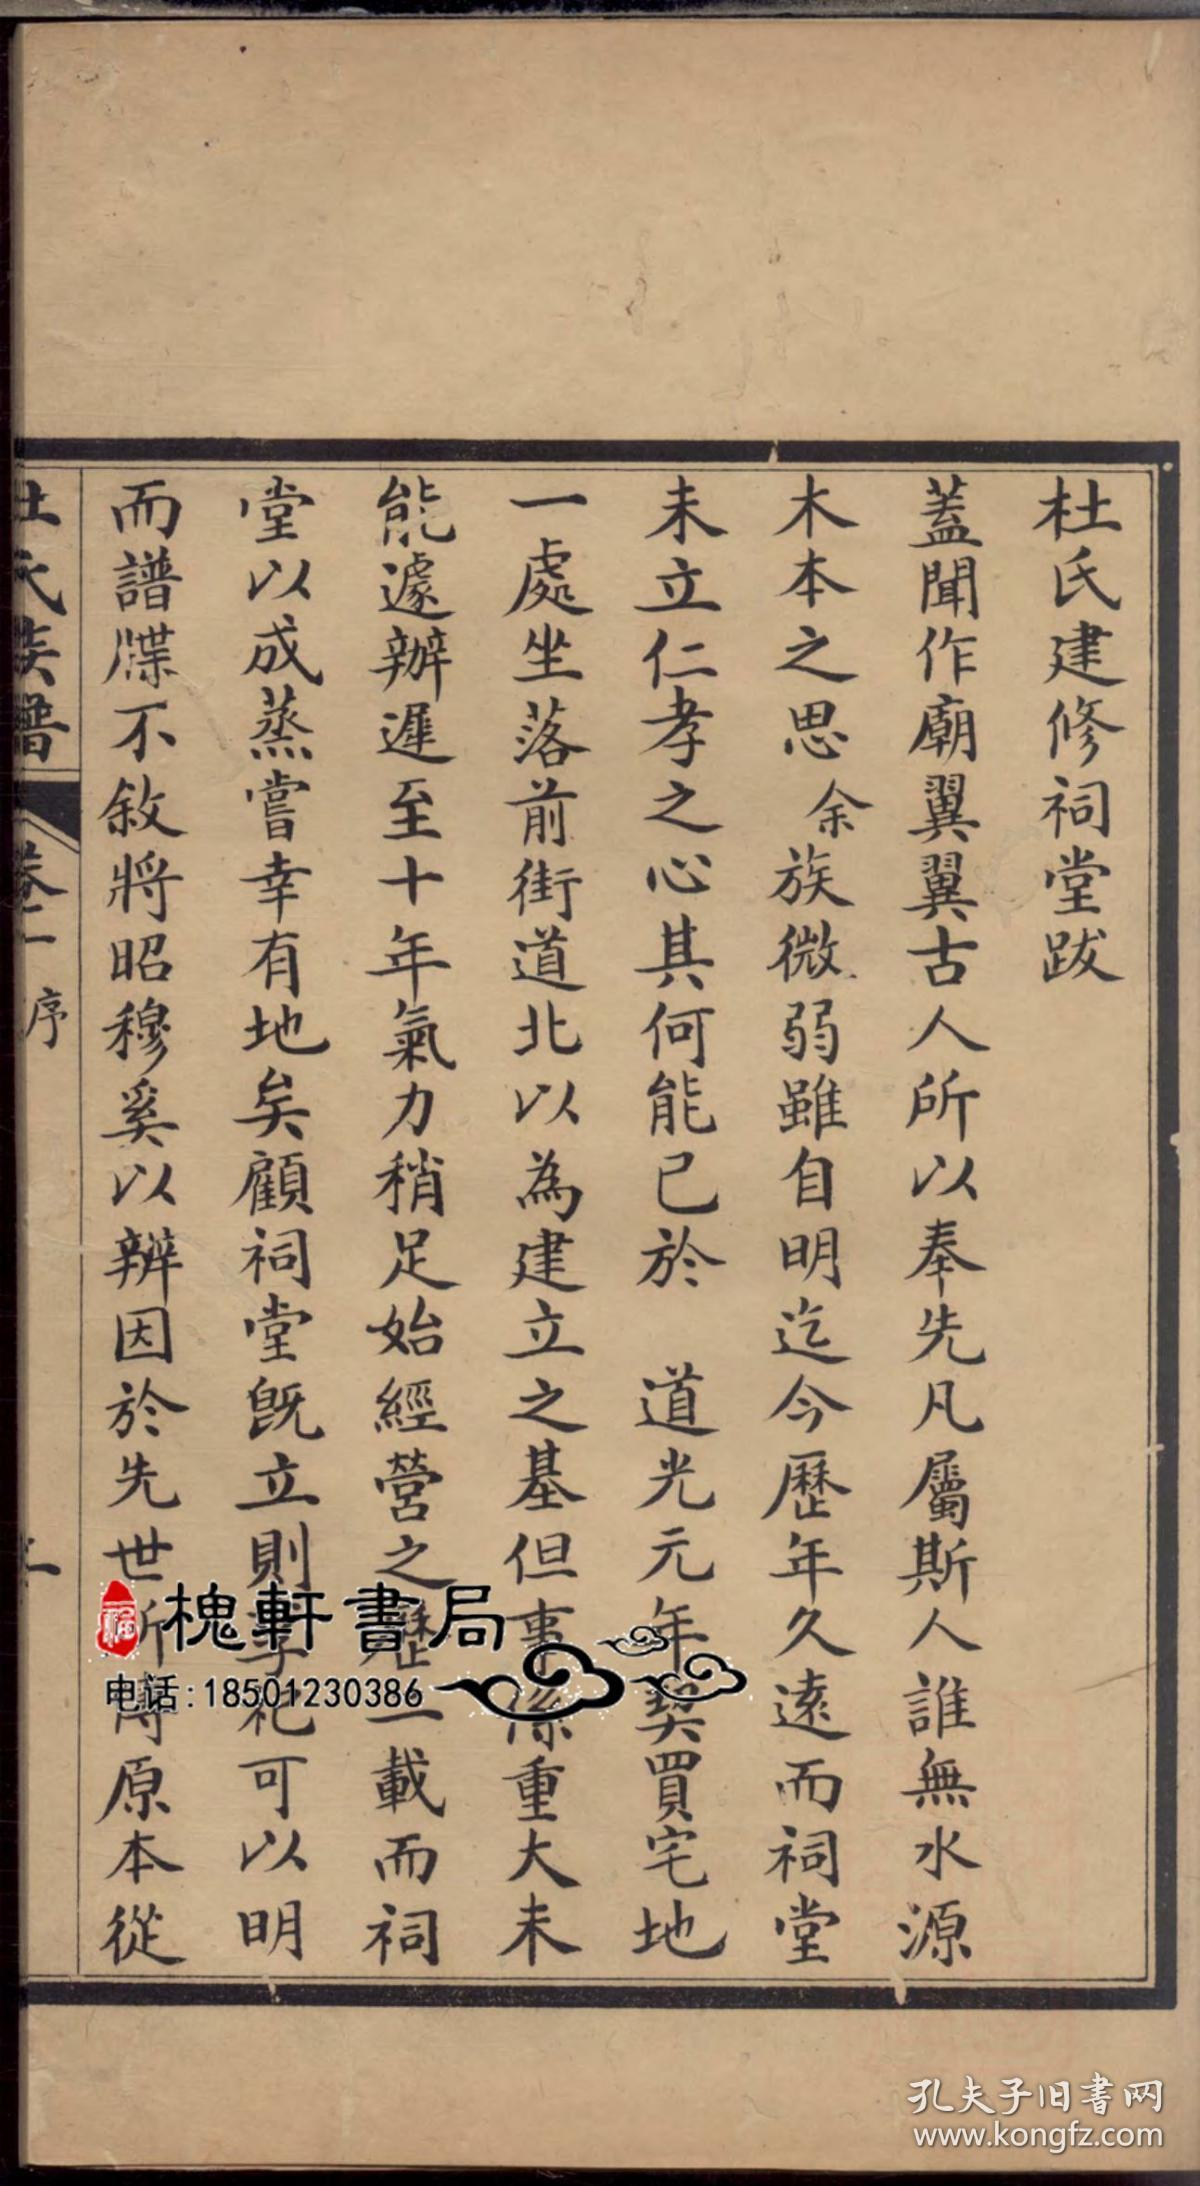 杜氏建修祠堂跋
蓋聞作廟翼翼古人所以奉先凡屬斯人誰無水源
木本之思余族微弱雖自明迄今歷年久遠而祠堂
未立仁孝之心其何能已於 道光元年契買宅地
一處坐落前街道北以為建立之基但事係重大未
能遽辦遲至十年氣力稍足始經營之歷一載而祠
堂以成蒸嘗幸有地矣顧祠堂既立則祀可以明
而譜牒不敘將昭穆奚以辨因於先世所傳原本從
杜氏族譜 卷一 序
槐軒書局
电话:18501230386
孔夫子旧书网
www.kongfz.com